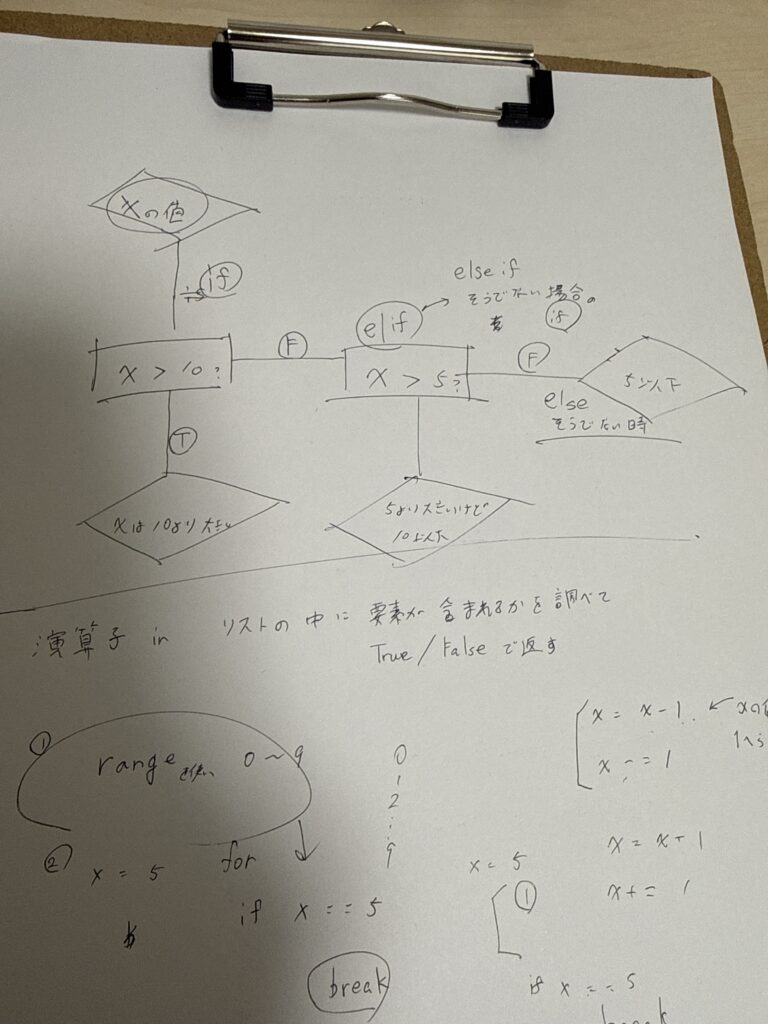 xの値
if
else if
そうでない場合の
if
elif
x > 10?
F
x > 5?
F
5以下
else
そうでない時
T
xは10より大きい
5より大きいけど
10以下
演算子 in リストの中に 要素が 含まれるかを調べて
True/False で返す
①
range を使い 0～9
0
1
2
:
9
x = x-1 ← xの
x -= 1
② x = 5 for
if x == 5
break
x = x+1
x += 1
x = 5
①
if x == 5
break